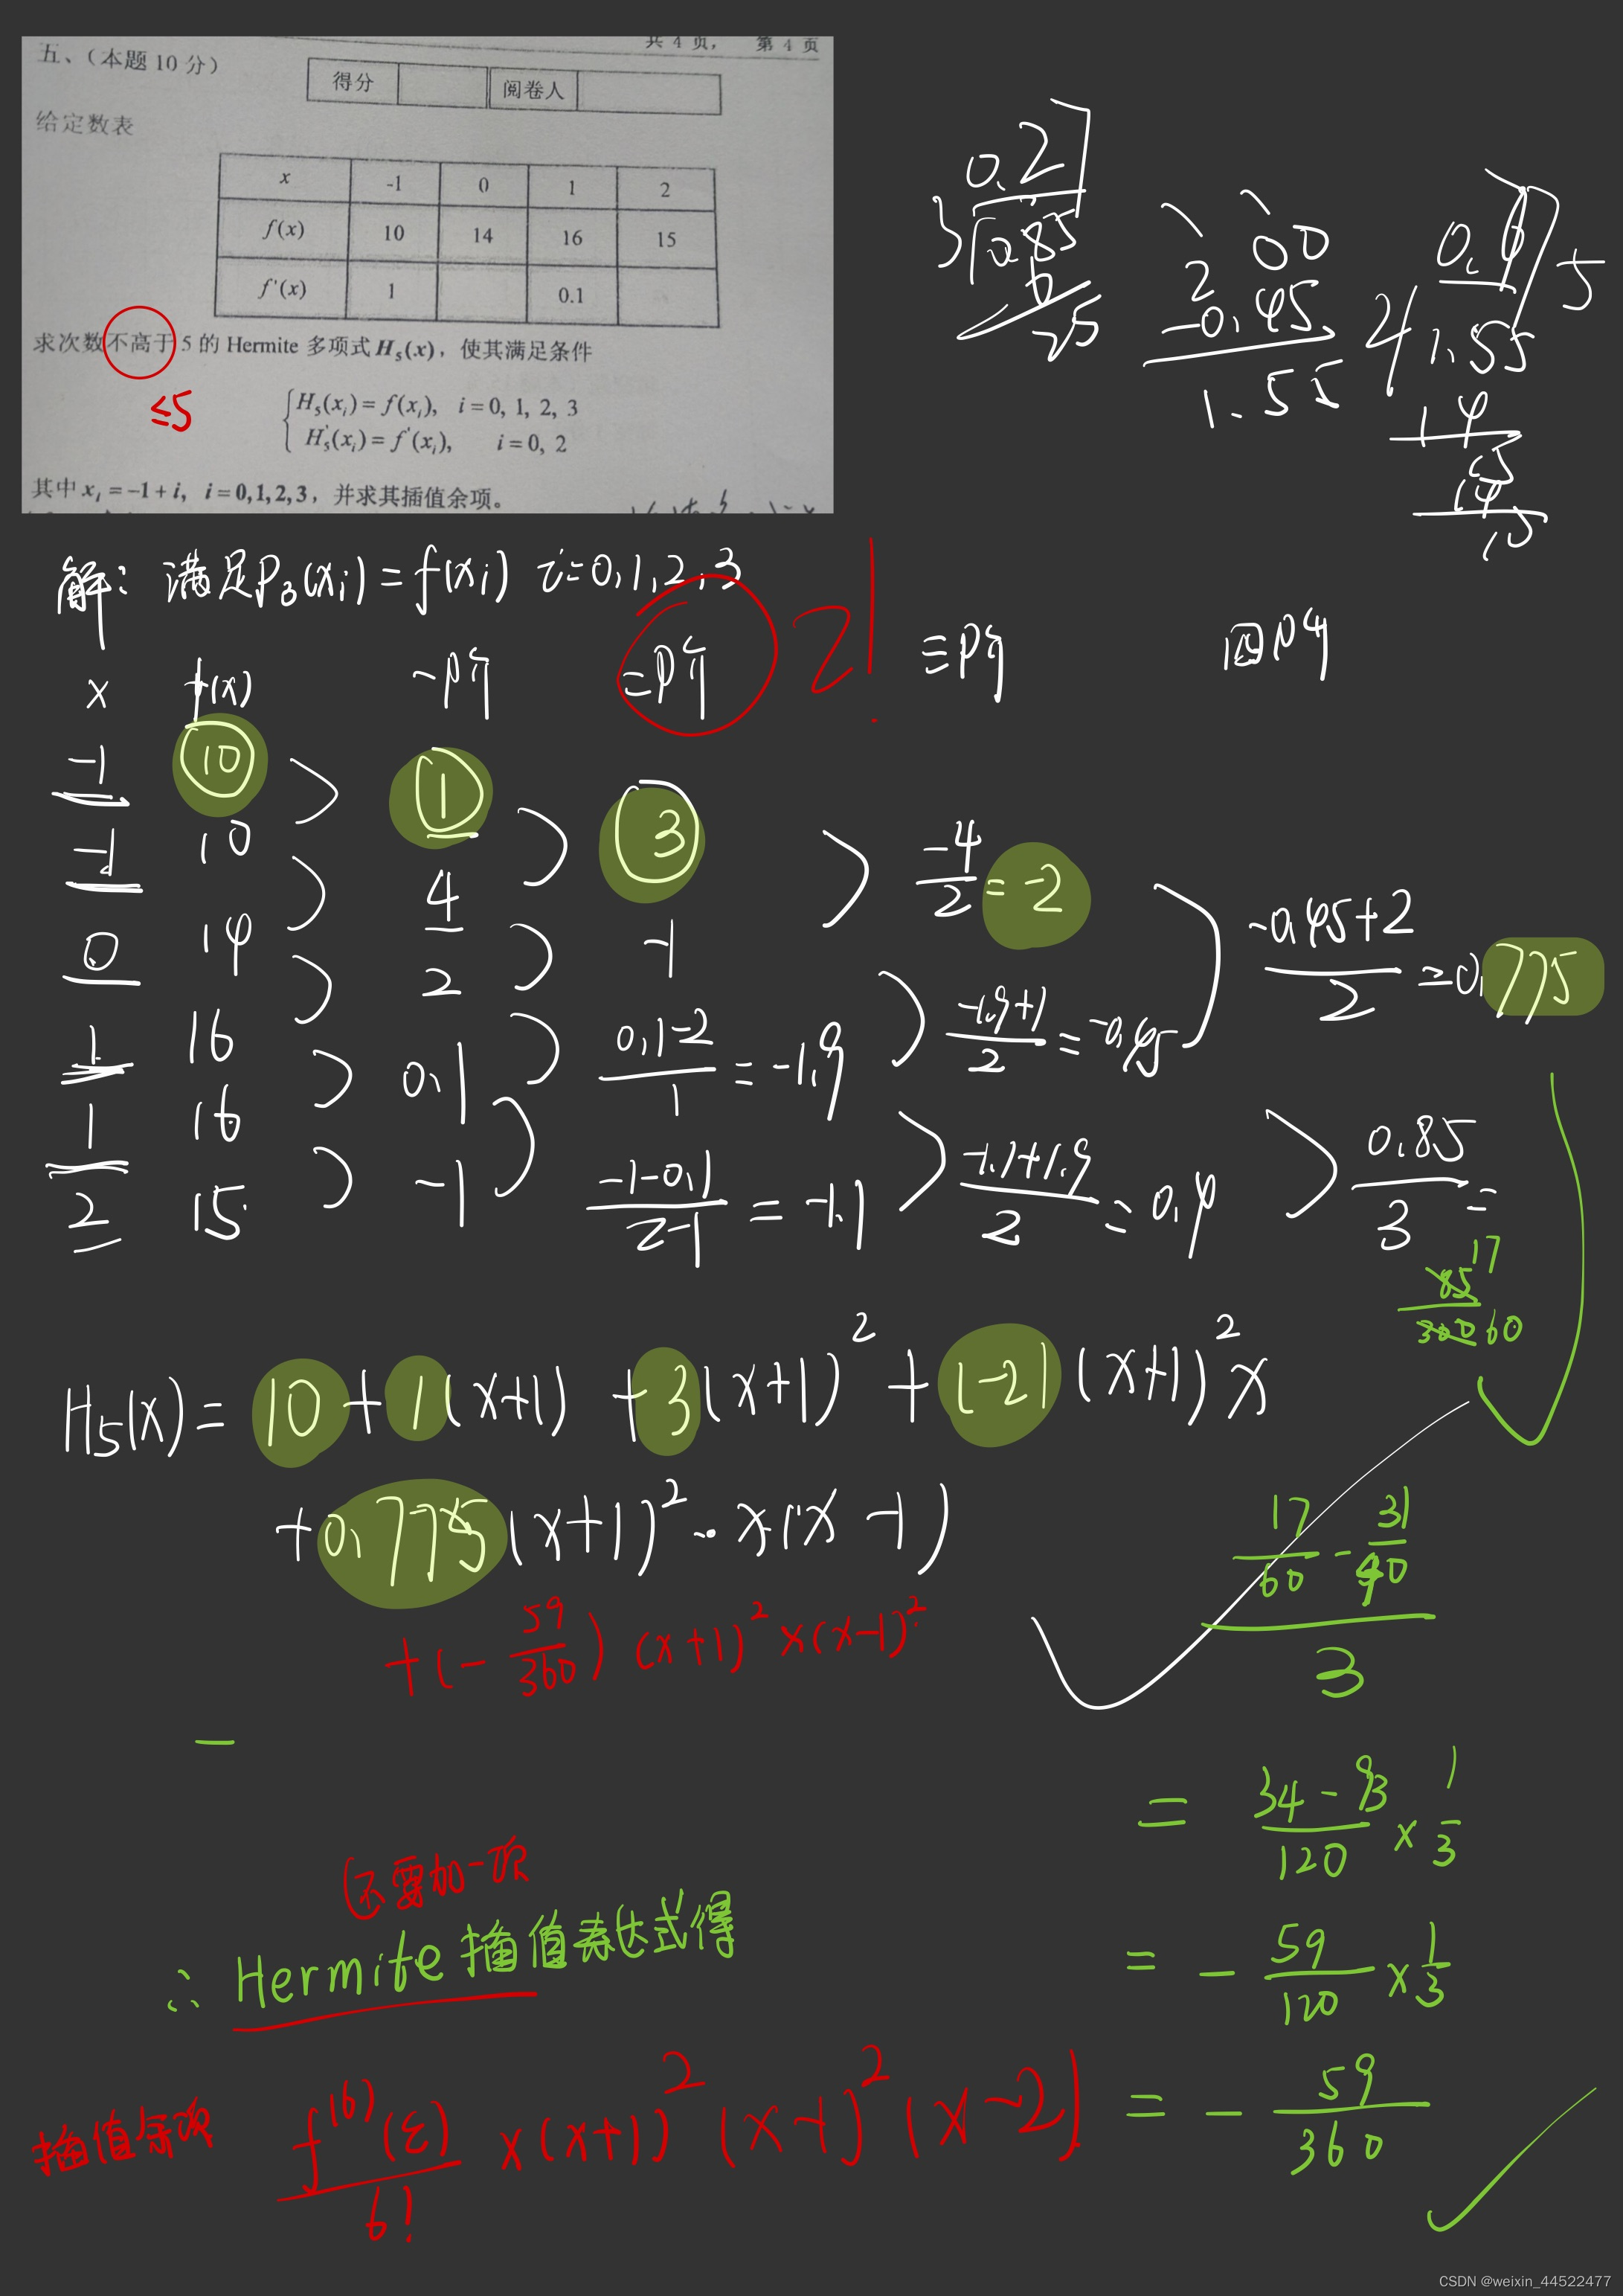 共 4 页， 第 4 页
五、（本题 10 分）
得分 阅卷人
给定数表
x -1 0 1 2
f(x) 10 14 16 15
f'(x) 1 0.1
求次数不高于 5 的 Hermite 多项式 H₅(x)，使其满足条件
≤5
H₅(xᵢ) = f(xᵢ), i = 0, 1, 2, 3
H₅'(xᵢ) = f'(xᵢ), i = 0, 2
其中 xᵢ = -1 + i, i = 0, 1, 2, 3，并求其插值余项。
0.2
3 0.85
6
25
2.00
-0.45
1.55
5
1.55
14
15
14
15
解：满足P₃(xᵢ) = f(xᵢ) i=0,1,2,3
x f(x) 一阶 二阶 2! 三阶 四阶
-1 10 1 3 -4/2 = -2
-1 10 4
0 14 2 -1 (-0.45+2)/2 = 0.775
1 16 0.1 (0.1-2)/1 = -1.9 (-1.9+1)/2 = -0.45
1 16
2 15 -1 (-1-0.1)/(2-1) = -1.1 (-1.1+1.9)/2 = 0.4 0.85/3 =
85/300 17/60
H₅(x) = 10 + 1(x+1) + 3(x+1)² + (-2)(x+1)²x
+ 0.775(x+1)²·x(x-1)
+ (-59/360)(x+1)²x(x-1)²
(17/60 - 31/40)/3
= (34-93)/120 × 1/3
还要加一项
∴ Hermite 插值表达式得
= -59/120 × 1/3
插值余项 f⁽⁶⁾(ε)/6! x(x+1)²(x-1)²(x-2)
= -59/360
CSDN @weixin_44522477